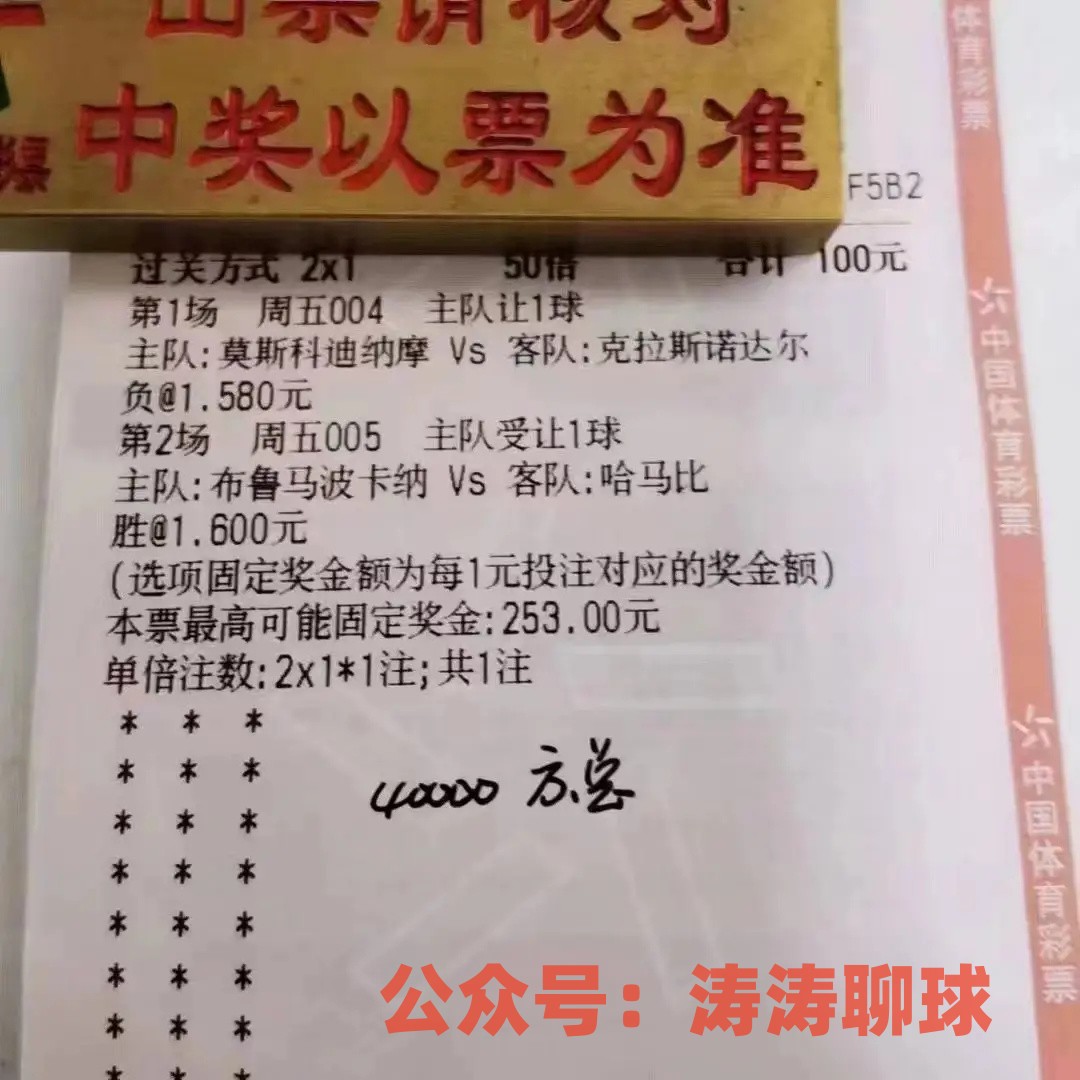 出票请核对
中奖以票为准
F5B2
过关方式 2x1 50倍 合计 100元
第1场 周五004 主队让1球
主队:莫斯科迪纳摩 Vs 客队:克拉斯诺达尔
负@1.580元
第2场 周五005 主队受让1球
主队:布鲁马波卡纳 Vs 客队:哈马比
胜@1.600元
(选项固定奖金额为每1元投注对应的奖金额)
本票最高可能固定奖金:253.00元
单倍注数:2x1*1注;共1注
* * *
* * *
40000 方总
* * *
* * *
* * *
* * *
* * *
* * *
公众号：涛涛聊球
体育彩票
中国体育彩票
中国体育彩票